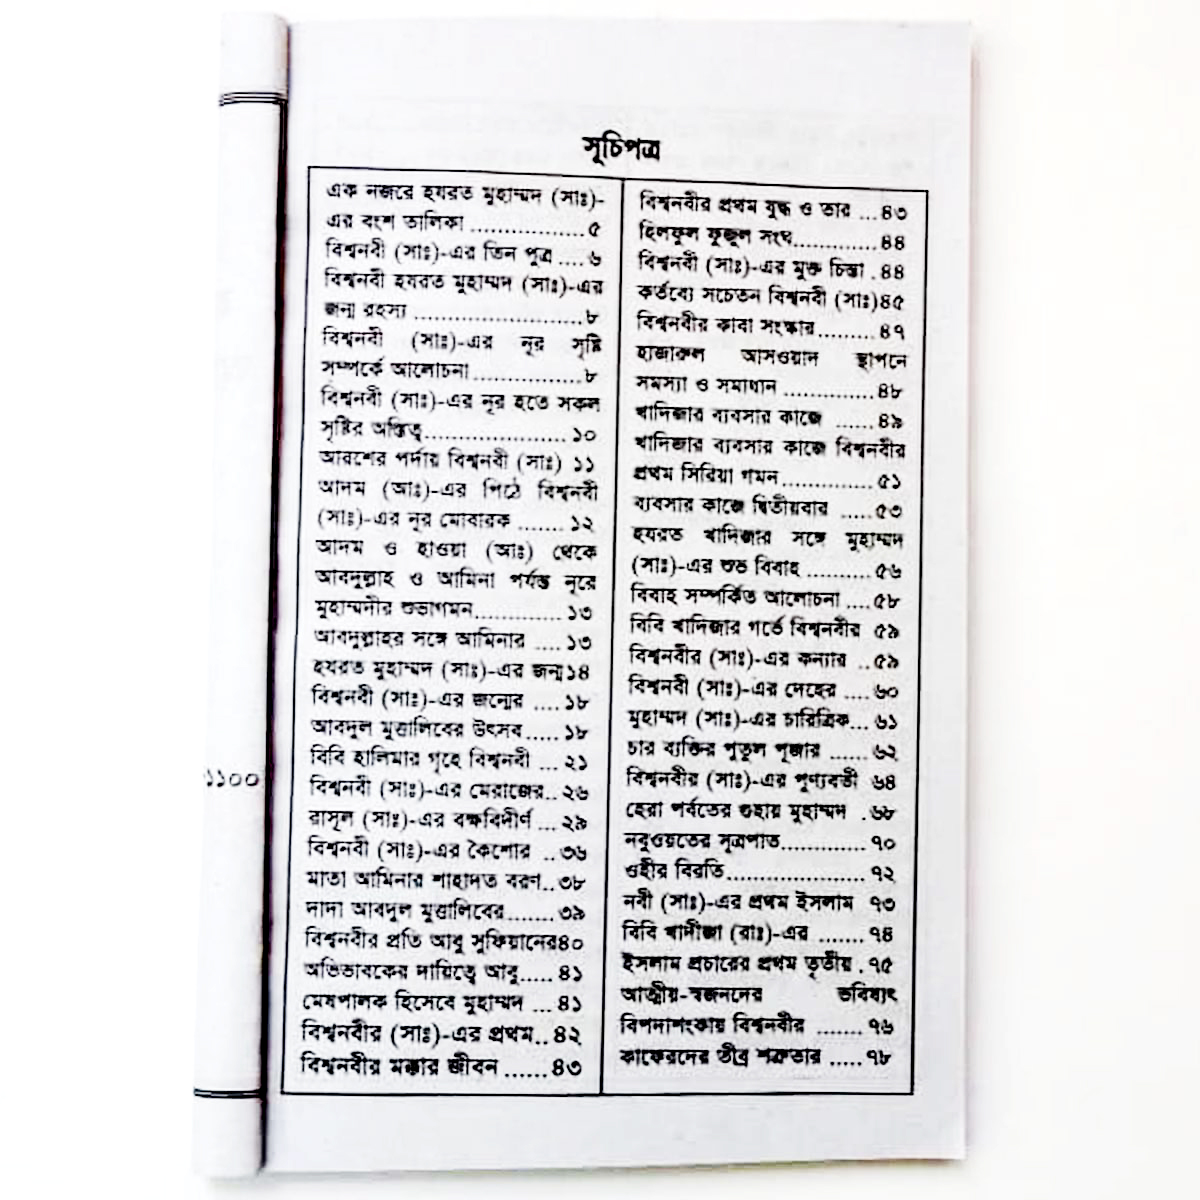 সূচিপত্র
এক নজরে হযরত মুহাম্মদ (সাঃ)-
এর বংশ তালিকা .................৫
বিশ্বনবী (সাঃ)-এর তিন পুত্র ....৬
বিশ্বনবী হযরত মুহাম্মদ (সাঃ)-এর
জন্ম রহস্য .........................৮
বিশ্বনবী (সাঃ)-এর নূর সৃষ্টি
সম্পর্কে আলোচনা................৮
বিশ্বনবী (সাঃ)-এর নূর হতে সকল
সৃষ্টির অস্তিত্ব..................... ১০
আরশের পর্দায় বিশ্বনবী (সাঃ) ১১
আদম (আঃ)-এর পিঠে বিশ্বনবী
(সাঃ)-এর নূর মোবারক ....... ১২
আদম ও হাওয়া (আঃ) থেকে
আবদুল্লাহ ও আমিনা পর্যন্ত নূরে
মুহাম্মদীর শুভাগমন............. ১৩
আবদুল্লাহর সঙ্গে আমিনার .... ১৩
হযরত মুহাম্মদ (সাঃ)-এর জন্ম১৪
বিশ্বনবী (সাঃ)-এর জন্মের .... ১৮
আবদুল মুত্তালিবের উৎসব..... ১৮
বিবি হালিমার গৃহে বিশ্বনবী ... ২১
বিশ্বনবী (সাঃ)-এর মেরাজের.. ২৬
রাসূল (সাঃ)-এর বক্ষবিদীর্ণ ... ২৯
বিশ্বনবী (সাঃ)-এর কৈশোর .. ৩৬
মাতা আমিনার শাহাদত বরণ.. ৩৮
দাদা আবদুল মুত্তালিবের....... ৩৯
বিশ্বনবীর প্রতি আবু সুফিয়ানের৪০
অভিভাবকের দায়িত্বে আবু..... ৪১
মেষপালক হিসেবে মুহাম্মদ ... ৪১
বিশ্বনবীর (সাঃ)-এর প্রথম.. ৪২
বিশ্বনবীর মক্কার জীবন ...... ৪৩
বিশ্বনবীর প্রথম যুদ্ধ ও তার ...৪৩
হিলফুল ফুজুল সংঘ............. ৪৪
বিশ্বনবী (সাঃ)-এর মুক্ত চিন্তা . ৪৪
কর্তব্যে সচেতন বিশ্বনবী (সাঃ)৪৫
বিশ্বনবীর কাবা সংস্কার......... ৪৭
হাজারুল আসওয়াদ স্থাপনে
সমস্যা ও সমাধান ..............৪৮
খাদিজার ব্যবসার কাজে ...... ৪৯
খাদিজার ব্যবসার কাজে বিশ্বনবীর
প্রথম সিরিয়া গমন.............. ৫১
ব্যবসার কাজে দ্বিতীয়বার .....৫৩
হযরত খাদিজার সঙ্গে মুহাম্মদ
(সাঃ)-এর শুভ বিবাহ .......... ৫৬
বিবাহ সম্পর্কিত আলোচনা .... ৫৮
বিবি খাদিজার গর্ভে বিশ্বনবীর ৫৯
বিশ্বনবীর (সাঃ)-এর কন্যার .. ৫৯
বিশ্বনবী (সাঃ)-এর দেহের .... ৬০
মুহাম্মদ (সাঃ)-এর চারিত্রিক... ৬১
চার ব্যক্তির পুতুল পূজার ...... ৬২
বিশ্বনবীর (সাঃ)-এর পুণ্যবতী ৬৪
হেরা পর্বতের গুহায় মুহাম্মদ . ৬৮
নবুওয়তের সূত্রপাত............. ৭০
ওহীর বিরতি..................... ৭২
নবী (সাঃ)-এর প্রথম ইসলাম ৭৩
বিবি খাদীজা (রাঃ)-এর ....... ৭৪
ইসলাম প্রচারের প্রথম তৃতীয় . ৭৫
আত্মীয়-স্বজনদের ভবিষ্যৎ
বিপদাশংকায় বিশ্বনবীর ....... ৭৬
কাফেরদের তীব্র শত্রুতার ..... ৭৮
১১০০